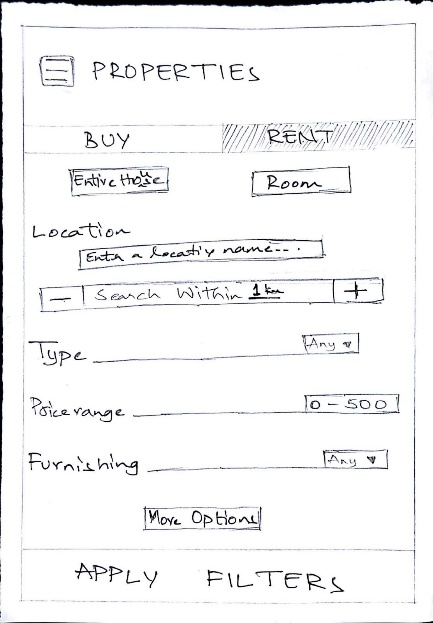 PROPERTIES
BUY RENT
Entire House Room
Location
Enter a locatiy name...
− Search Within 1 km +
Type Any ▾
Price range 0 - 500
Furnishing Any ▾
More Options
APPLY FILTERS